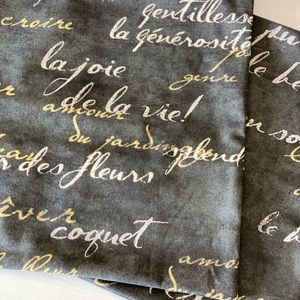 gentillesse
croire
la générosité
joie
genre
la joie
de la vie!
amour
du jardin
splend
des fleurs
rêver
coquet
amo
le be
on so
le b